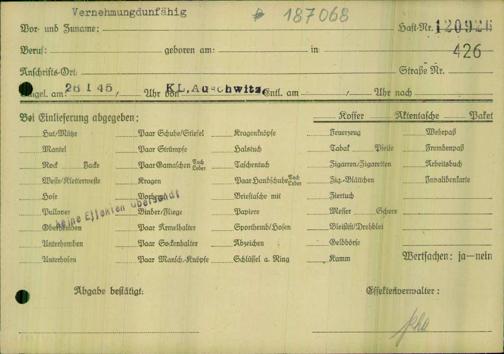 Vernehmungdunfähig
187068
Vor- und Zuname: Haft-Nr. 120926
Beruf: geboren am: in 426
Anschrifts-Ort: Straße Nr.
Eingel. am: 26 I 45, / Uhr von KL. Auschwitz, Entl. am / Uhr nach
Bei Einlieferung abgegeben: Koffer Aktentasche Paket
Hut/Mütze Paar Schuhe/Stiefel Kragenknöpfe Feuerzeug Wehrpaß
Mantel Paar Strümpfe Halstuch Tabak Pfeife Fremdenpaß
Rock Jacke Paar Gamaschen Tuch Leder Taschentuch Zigarren/Zigaretten Arbeitsbuch
Weste/Kletterweste Kragen Paar Handschuhe Tuch Leder Zig.-Blättchen Invalidenkarte
Hose Brieftasche mit Ziertuch
keine Effekten übersandt
Pullover Binder/Fliege Papiere Messer Schere
Oberhemden Paar Ärmelhalter Sporthemd/Hosen Bleistift/Drehblei
Unterhemden Paar Sockenhalter Abzeichen Geldbörse
Unterhosen Paar Mansch.-Knöpfe Schlüssel a. Ring Kamm Wertsachen: ja—nein
Abgabe bestätigt: Effektenverwalter: